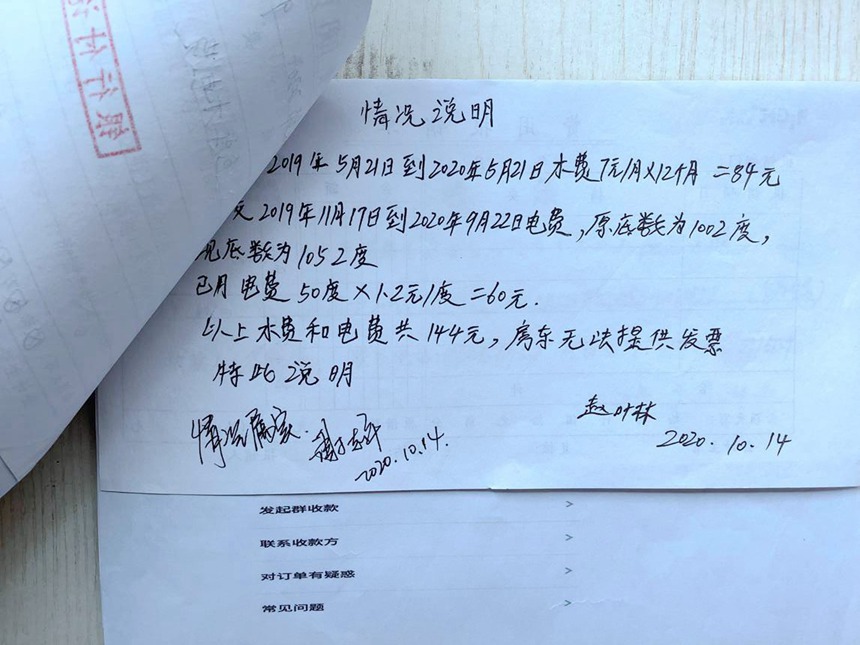 情况说明
2019年5月21日到2020年5月21日水费7元/月×12个月=84元
2019年11月17日到2020年9月22日电费,原底数为1002度,
现底数为1052度
已用电费50度×1.2元/度=60元.
以上水费和电费共144元,房东无法提供发票
特此说明
赵叶林
2020.10.14
情况属实.
2020.10.14.
发起群收款 >
联系收款方 >
对订单有疑惑 >
常见问题 >